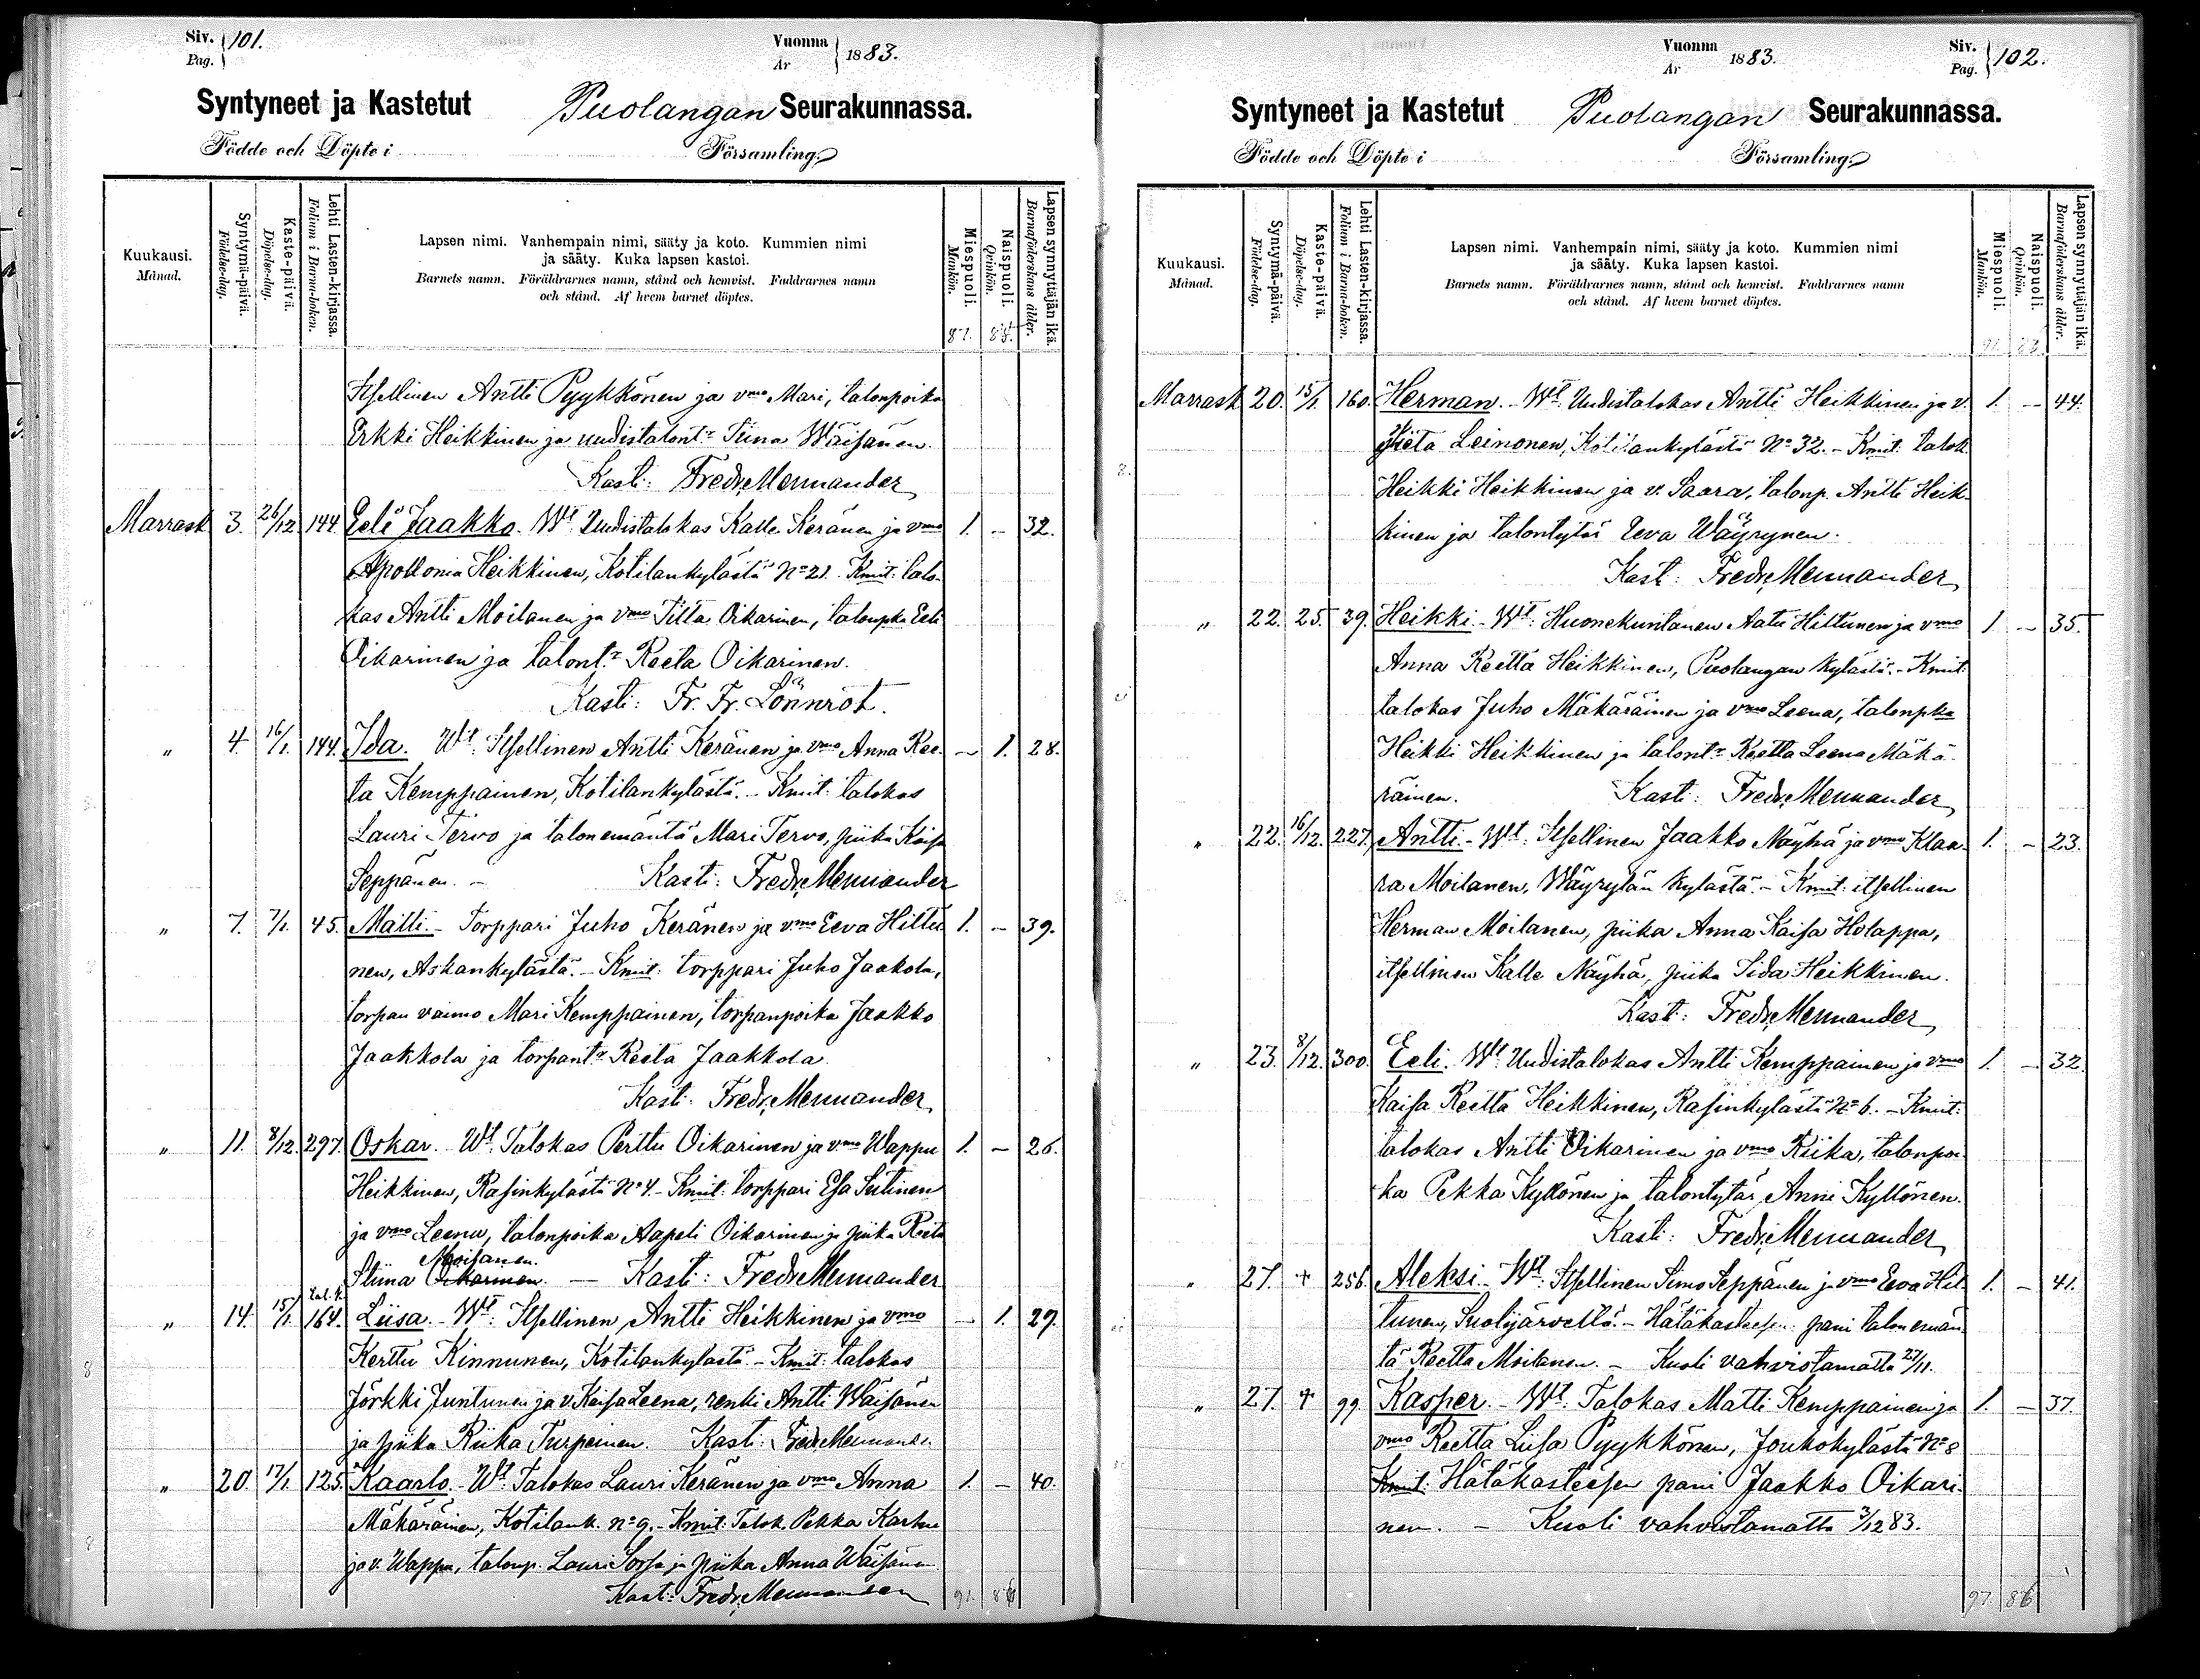 Siv. 101.
Pag.
Vuonna 1883.
År
Syntyneet ja Kastetut Puolangan Seurakunnassa.
Födde och Döpte i Församling.
Kuukausi.
Månad.
Syntymä-päivä.
Födelse-dag.
Kaste-päivä.
Döpelse-dag.
Lehti Lasten-kirjassa.
Folium i Barna-boken.
Lapsen nimi. Vanhempain nimi, sääty ja koto. Kummien nimi
ja sääty. Kuka lapsen kastoi.
Barnets namn. Föräldrarnes namn, stånd och hemvist. Faddrarnes namn
och stånd. Af hvem barnet döptes.
Miespuoli.
Mankön.
Naispuoli.
Qvinkön.
Lapsen synnyttäjän ikä.
Barnaföderskans ålder.
Itsellinen Antti Pyykkönen ja vmo Mari, talonpoika
Erkki Heikkinen ja uudistalont:r Tiina Wäisänen.
Kasti: Fredr. Mennander
Marrask 3. 26/12 144. Eeli Jaakko. Wt. Uudistalokas Kalle Keränen ja vmo 1. – 32.
Apollonia Heikkinen, Kotilankylästä No 21. Kmit: talo-
kas Antti Moilanen ja vmo Tilta Oikarinen, talonpka Eeli
Oikarinen ja talont:r Reeta Oikarinen.
Kasti: Fr. Fr. Lönnrot.
" 4. 16/1. 144. Ida. Wt. Itsellinen Antti Keränen ja vmo Anna Ree- – 1. 28.
ta Kemppainen, Kotilankylästä. – Kmit: talokas
Lauri Tervo ja talonemäntä Mari Tervo, piika Kaisa
Seppänen. – Kasti: Fredr. Mennander
" 7. 7/1. 45. Matti. – Torppari Juho Keränen ja vmo Eeva Hiltu- 1. – 39.
nen, Askankylästä. – Kmit: torppari Juho Jaakola,
torpan vaimo Mari Kemppainen, torpanpoika Jaakko
Jaakkola ja torpant:r Reeta Jaakkola.
Kasti: Fredr. Mennander
" 11. 8/12. 297. Oskar. Wt. Talokas Perttu Oikarinen ja vmo Wappu 1. – 26.
Heikkinen, Rasinkylästä No 4. – Kmit: torppari Esa Sutinen
ja vmo Leena, talonpoika Aapeli Oikarinen ja piika Reeta
Moisanen.
Stiina Oikarinen. – Kasti: Fredr. Mennander
" 14. 15/1. 164. Liisa. – Wt. Itsellinen Antti Heikkinen ja vmo – 1. 29.
Kerttu Kinnunen, Kotilankylästä. – Kmit: talokas
Jörkki Juntunen ja v. Kaisa Leena, renki Antti Wäisänen
ja piika Riika Turpeinen. Kasti: Fredr. Mennander
" 20. 17/1. 125. Kaarlo. – Wt. Talokas Lauri Keränen ja vmo Anna 1. – 40.
Mäkäräinen, Kotilank. no 9. – Kmit: Talok. Pekka Karhu
ja v. Wappu, talonp. Lauri Sorsa ja piika Anna Wäisänen
Kasti: Fredr. Mennander
Siv. 102.
Pag.
Vuonna 1883.
År
Syntyneet ja Kastetut Puolangan Seurakunnassa.
Födde och Döpte i Församling.
Kuukausi.
Månad.
Syntymä-päivä.
Födelse-dag.
Kaste-päivä.
Döpelse-dag.
Lehti Lasten-kirjassa.
Folium i Barna-boken.
Lapsen nimi. Vanhempain nimi, sääty ja koto. Kummien nimi
ja sääty. Kuka lapsen kastoi.
Barnets namn. Föräldrarnes namn, stånd och hemvist. Faddrarnes namn
och stånd. Af hvem barnet döptes.
Miespuoli.
Mankön.
Naispuoli.
Qvinkön.
Lapsen synnyttäjän ikä.
Barnaföderskans ålder.
Marrask 20. 15/1. 160. Herman. – Wt. Uudistalokas Antti Heikkinen ja v. 1. – 44.
Leinonen, Kotilankylästä No 32. – Kmit: talok.
Heikki Heikkinen ja v. Saara, talonp. Antti Heik-
kinen ja talontytär Eeva Wäyrynen.
Kast: Fredr. Mennander
" 22. 25. 39. Heikki. – Wt. Huonekuntanen Aatu Hiltunen ja vmo 1. – 35.
Anna Reetta Heikkinen, Puolangan kylästä. – Kmit:
talokas Juho Mäkäräinen ja vmo Leena, talonpka
Heikki Heikkinen ja talont:r Reetta Leena Mäkä-
räinen. Kasti: Fredr. Mennander
" 22. 16/12. 227. Antti. – Wt. Itsellinen Jaakko Näyhä ja vmo Klaa- 1. – 23.
ra Moilanen, Wäyrylän kylästä. – Kmit: itsellinen
Herman Moilanen, piika Anna Kaisa Holappa,
itsellinen Kalle Näyhä, piika Iida Heikkinen.
Kast: Fredr. Mennander
" 23. 8/12. 300. Eeli. Wt. Uudistalokas Antti Kemppainen ja vmo 1. – 32.
Kaisa Reetta Heikkinen, Rasinkylästä No 6. – Kmit:
talokas Antti Oikarinen ja vmo Riika, talonpoi-
ka Pekka Kyllönen ja talontytär Anni Kyllönen.
Kast: Fredr. Mennander
" 27. + 256. Aleksi. – Wt. Itsellinen Simo Seppänen ja vmo Eeva Hil- 1. – 41.
tunen, Suolijärvellä. – Hätäkasteesen pani talonemän-
tä Reetta Moilanen. – Kuoli vahvistamatta 27/11.
" 27. + 99. Kasper. – Wt. Talokas Matti Kemppainen ja 1. – 37.
vmo Reetta Liisa Pyykkönen, Joukokylästä No 8
Kmit: Hätäkasteesen pani Jaakko Oikari-
nen. – Kuoli vahvistamatta 3/12 83.
97. 86